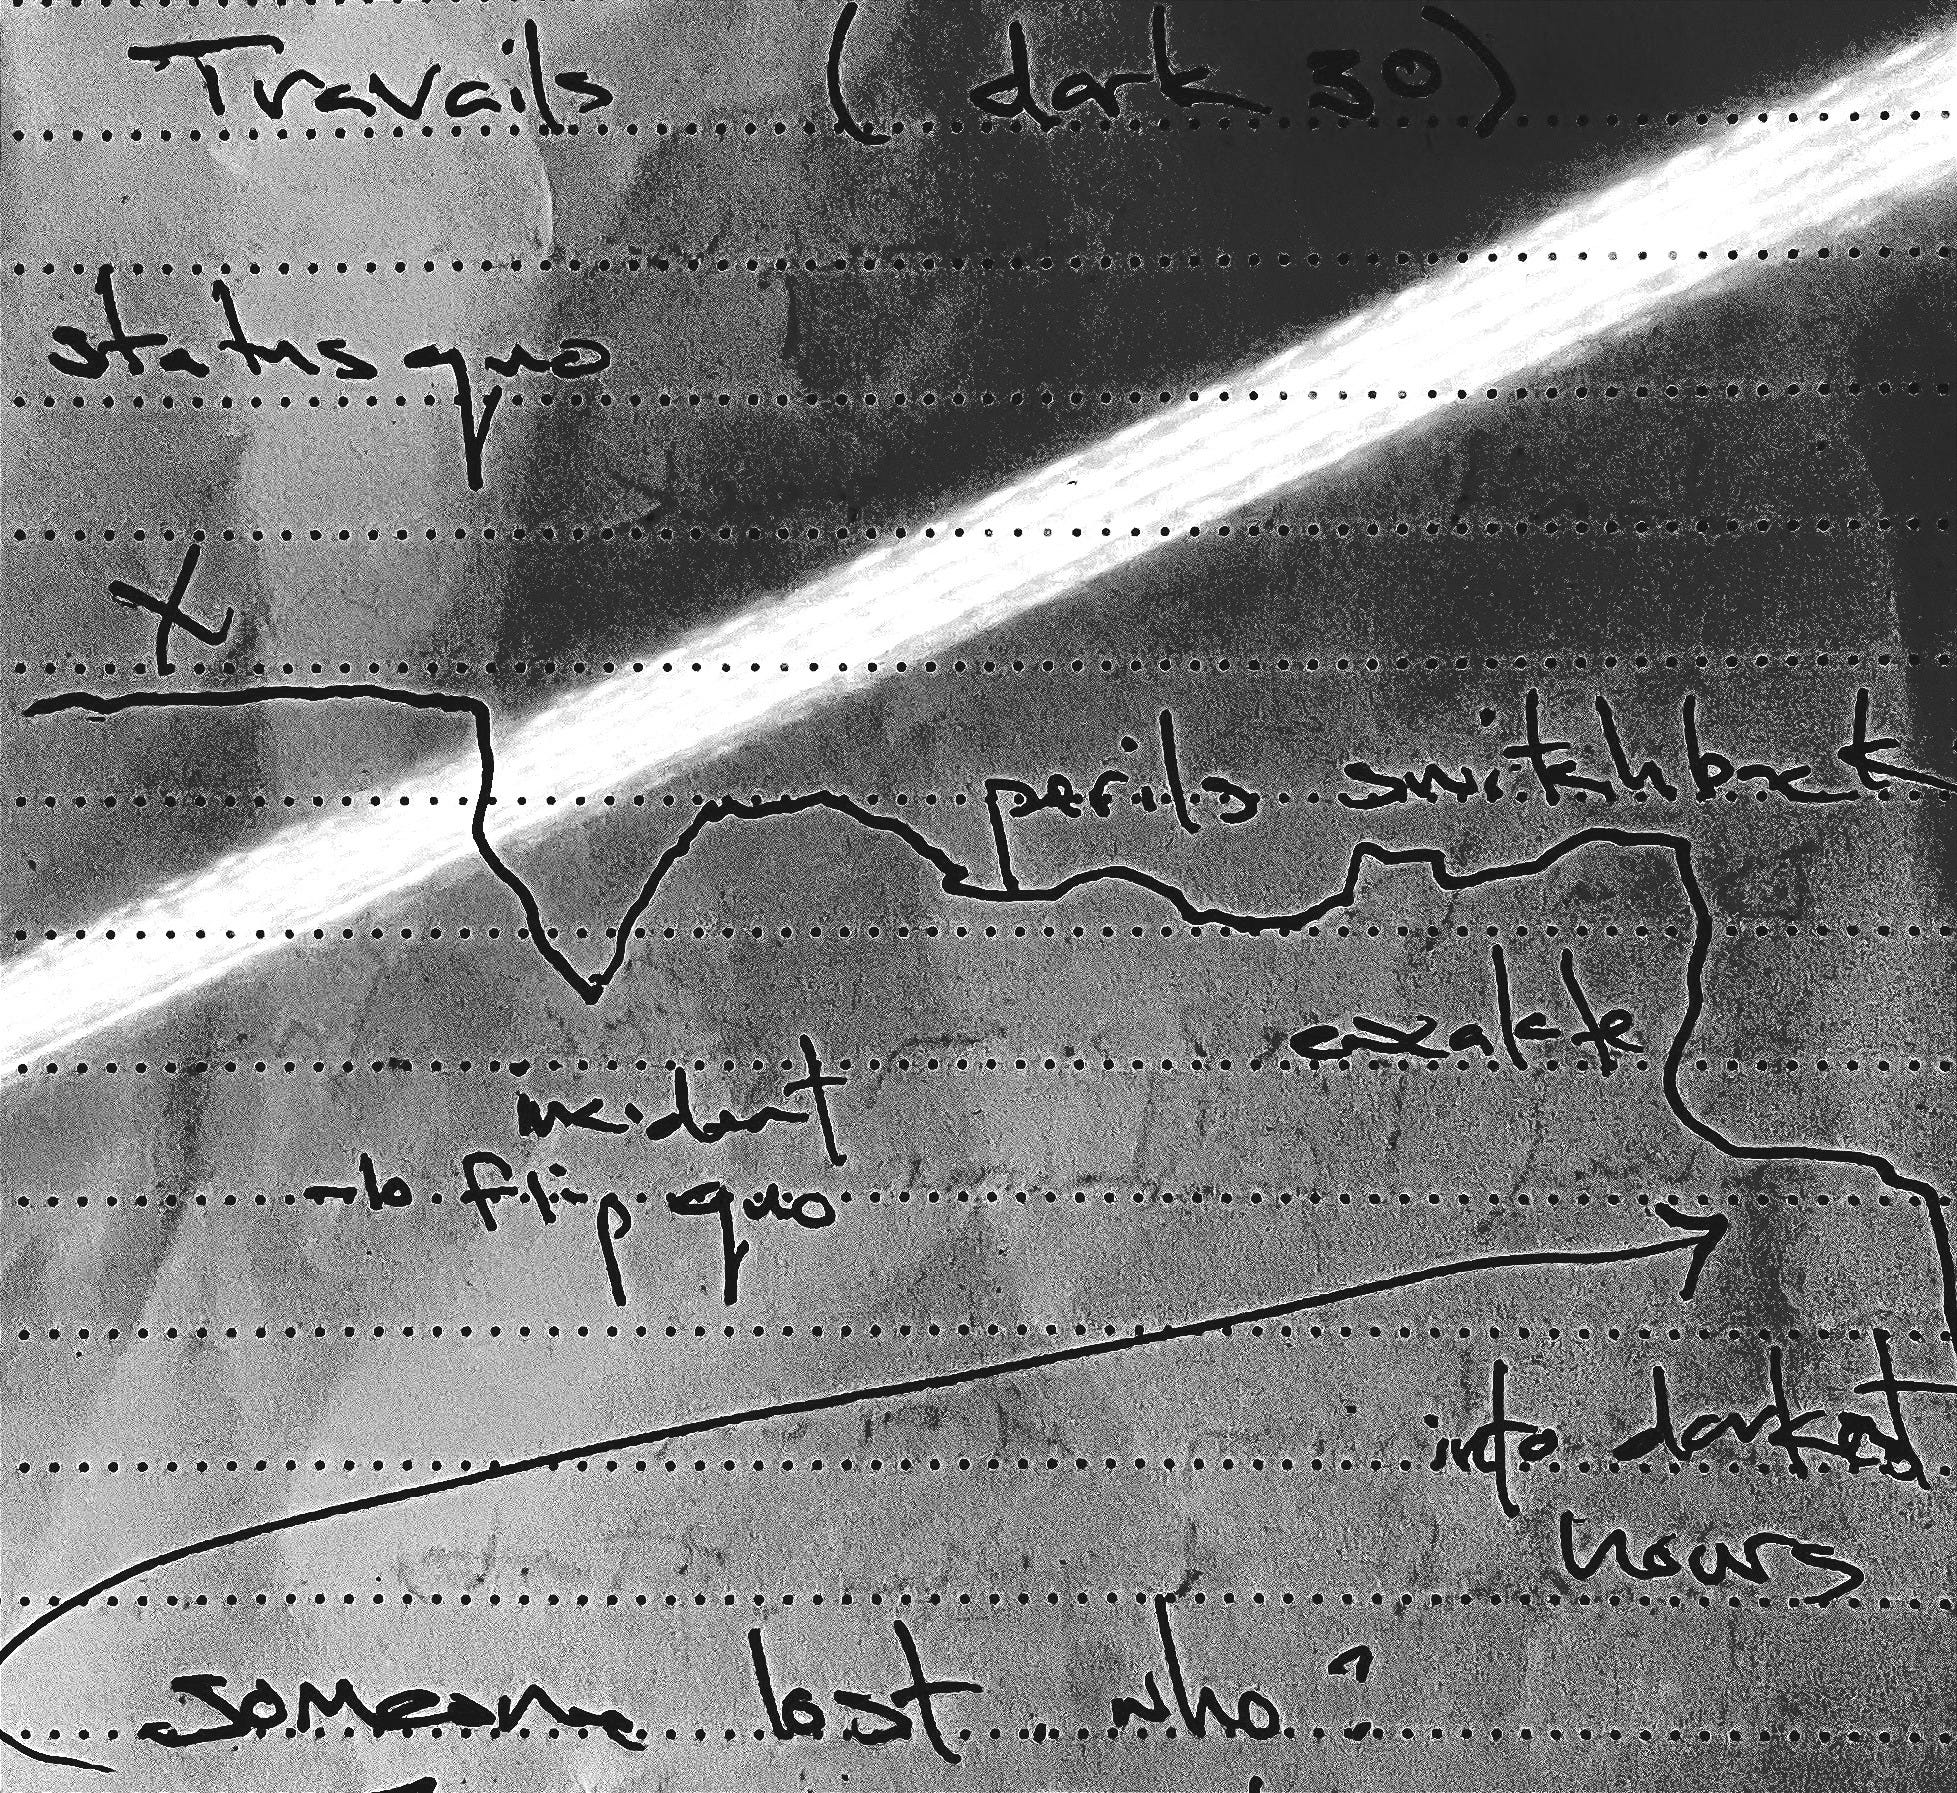 Travails (dark 30)
status quo
X
perils switchback
incident
to flip quo
into darkest
hours
someone lost. who?